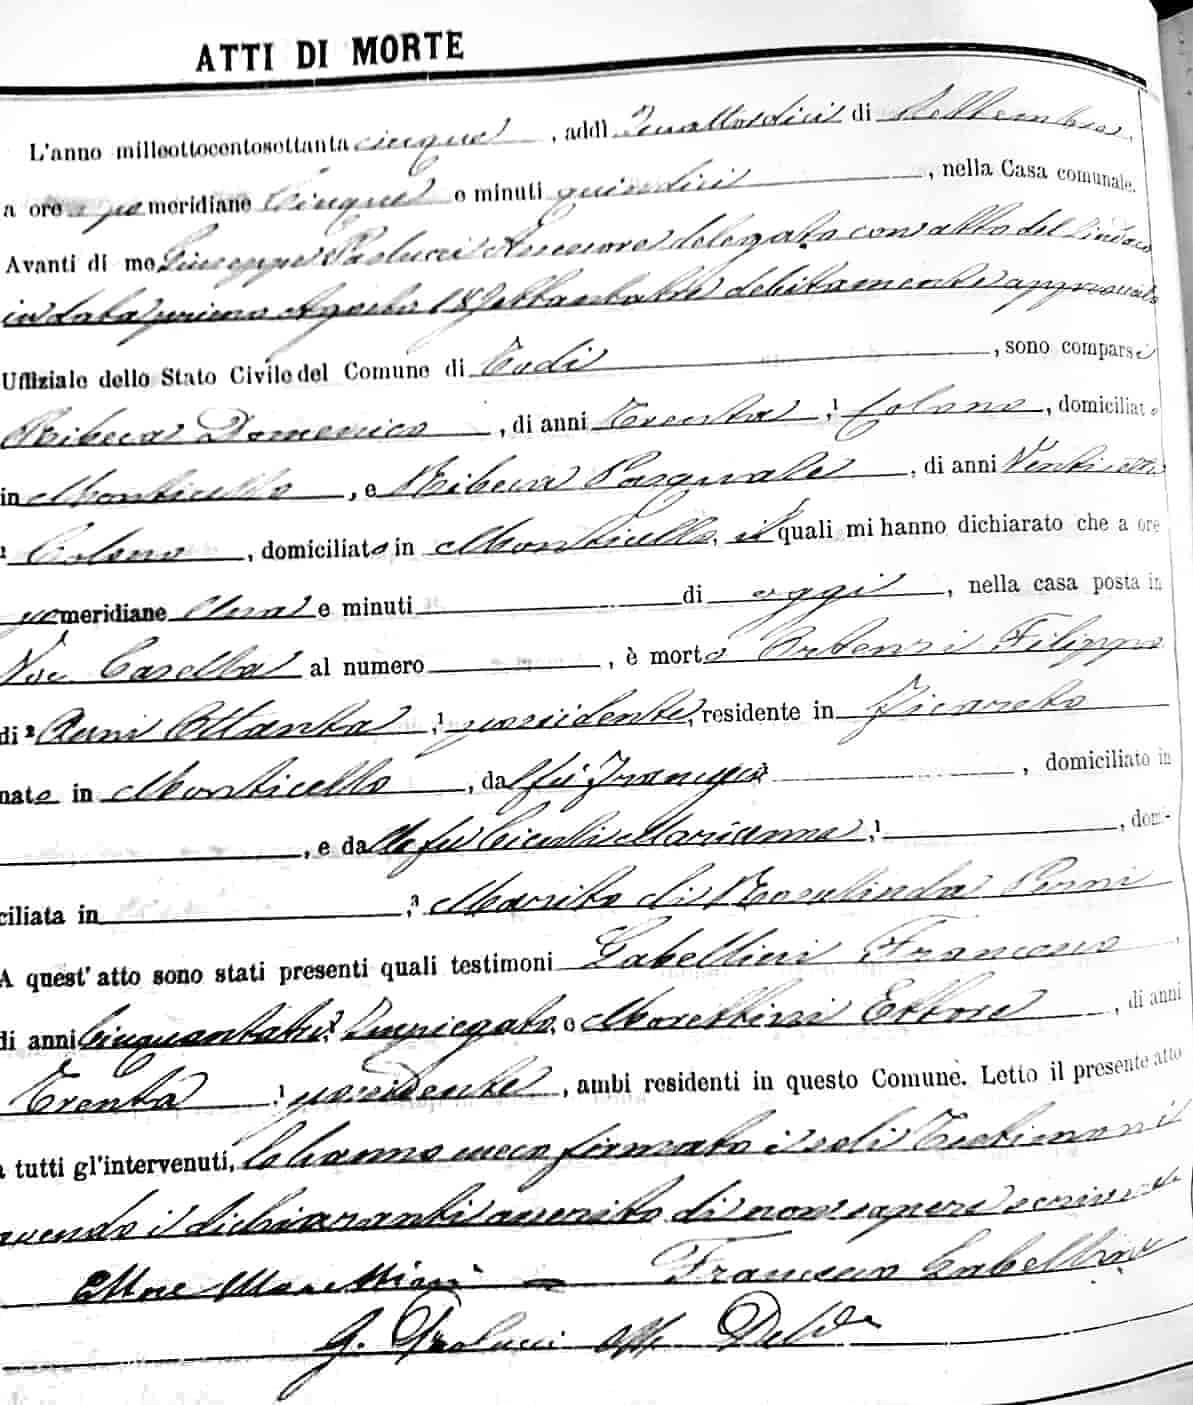 ATTI DI MORTE
L'anno milleottocentosettanta cinque, addì Quattordici di Settembre,
a ore pomeridiane Cinque e minuti quindici, nella Casa comunale.
Avanti di me Giuseppe Paolucci Assessore delegato con atto del Sindaco
in data primo Agosto 18settantatre debitamente approvato
Uffiziale dello Stato Civile del Comune di Todi, sono comparsi
Ribeca Domenico, di anni Trenta,¹ Colono, domiciliato
in Monticello, e Ribeca Pasquale, di anni Ventisette
¹ Colono, domiciliato in Monticello, i quali mi hanno dichiarato che a ore
pomeridiane Una e minuti di oggi, nella casa posta in
Voc. Casella al numero, è morto Ortenzi Filippo
di ² Anni Ottanta,¹ possidente, residente in Ficareto
nato in Monticello, dal fu Francesco, domiciliato in
, e da la fu Marianna,¹ , domi-
ciliata in ,³ Marito di Rosalinda Penni
A quest' atto sono stati presenti quali testimoni Gabellini Francesco
di anni Cinquantatre,¹ Impiegato, e Morettini Ettore, di anni
Trenta ,¹ possidente, ambi residenti in questo Comune. Letto il presente atto
a tutti gl'intervenuti, lo hanno meco firmato i soli Testimoni
avendo i dichiaranti asserito di non sapere scrivere
Ettore Morettini — Francesco Gabellini
G. Paolucci Off. Del.